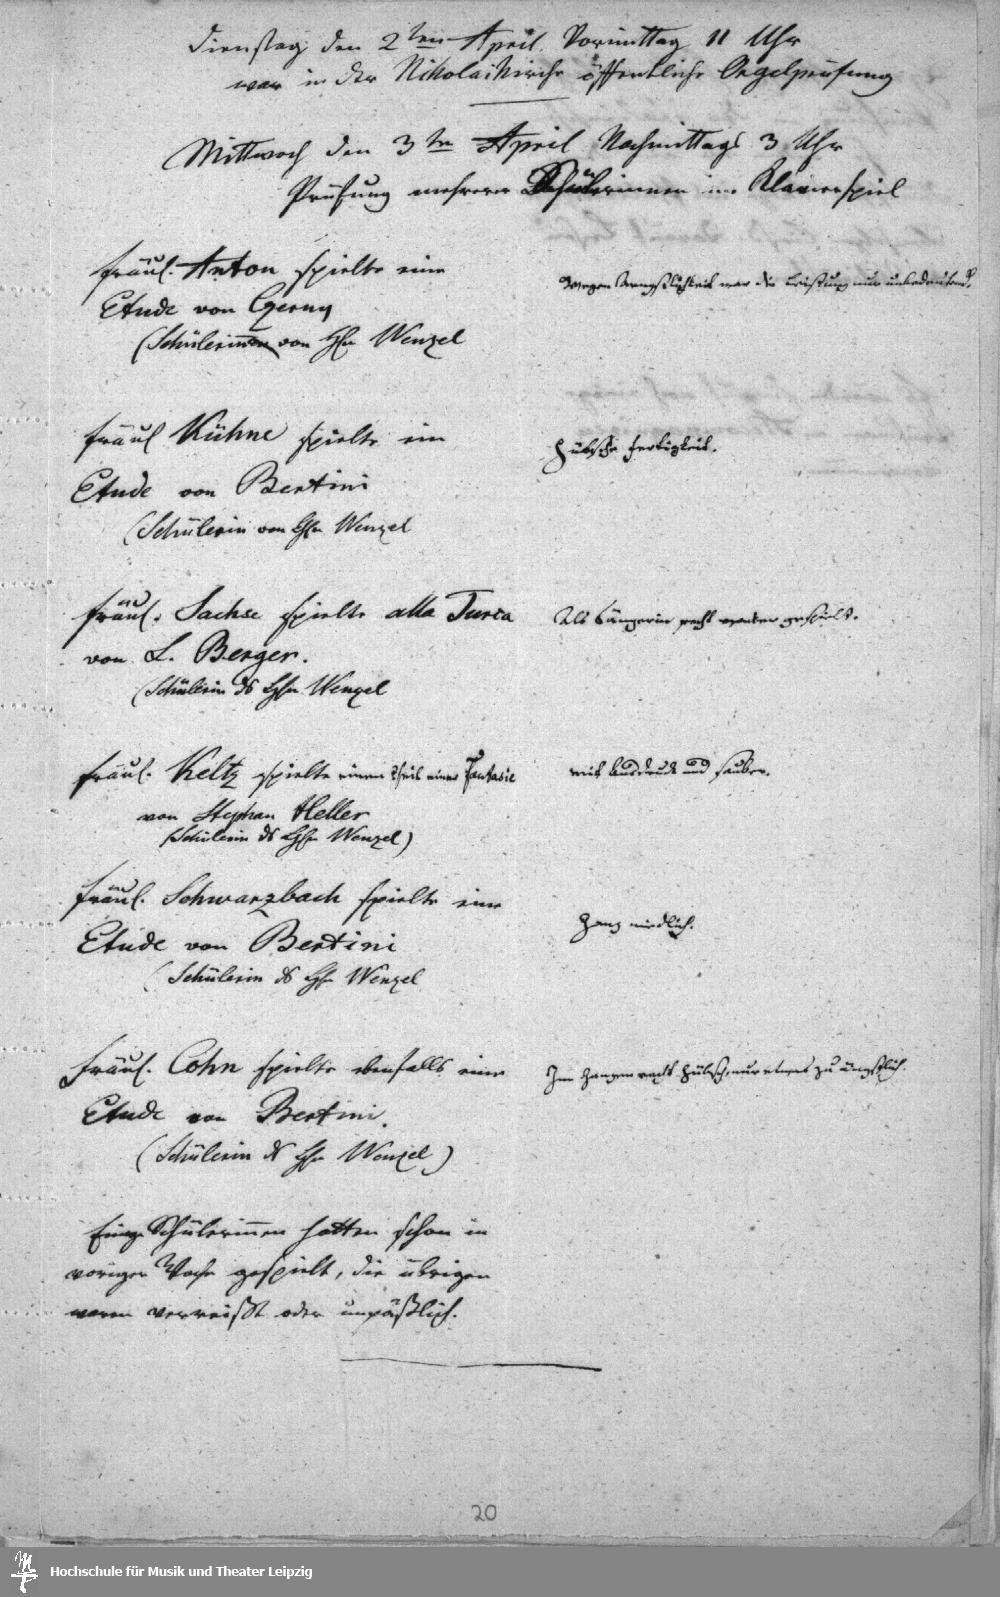 Dienstag den 2ten April. Vormittag 11 Uhr
war in der Nikolaikirche öffentliche Orgelprüfung
Mittwoch den 3ten April Nachmittags 3 Uhr
Prüfung mehrerer Schülerinnen im Klavierspiel
Fräul. Anton spielte eine
Etude von Czerny
(Schülerin von Hrn Wenzel
Wegen Aengstlichkeit war die Leistung nur unbedeutend.
Fräul Kühne spielte ein
Etude von Bertini
(Schülerin von Hrn Wenzel
Hübsche Fertigkeit.
Fräul. Sachse spielte alla Turca
von L. Berger.
(Schülerin ds Hrn Wenzel
Als Sängerin recht wacker gespielt.
Fräul. Keltz spielte einen Theil einer Fantasie
von Stephan Heller
(Schülerin ds Hrn Wenzel)
mit Ausdruck und sauber.
Fräul. Schwarzbach spielte eine
Etude von Bertini
(Schülerin ds Hrn Wenzel
Ganz niedlich.
Fräul. Cohn spielte ebenfalls eine
Etude von Bertini.
(Schülerin ds Hrn Wenzel)
Im Ganzen recht hübsch, nur etwas zu ängstlich.
Einige Schülerinnen hatten schon in
voriger Woche gespielt, die übrigen
waren verreißt oder unpäßlich.
20
Hochschule für Musik und Theater Leipzig